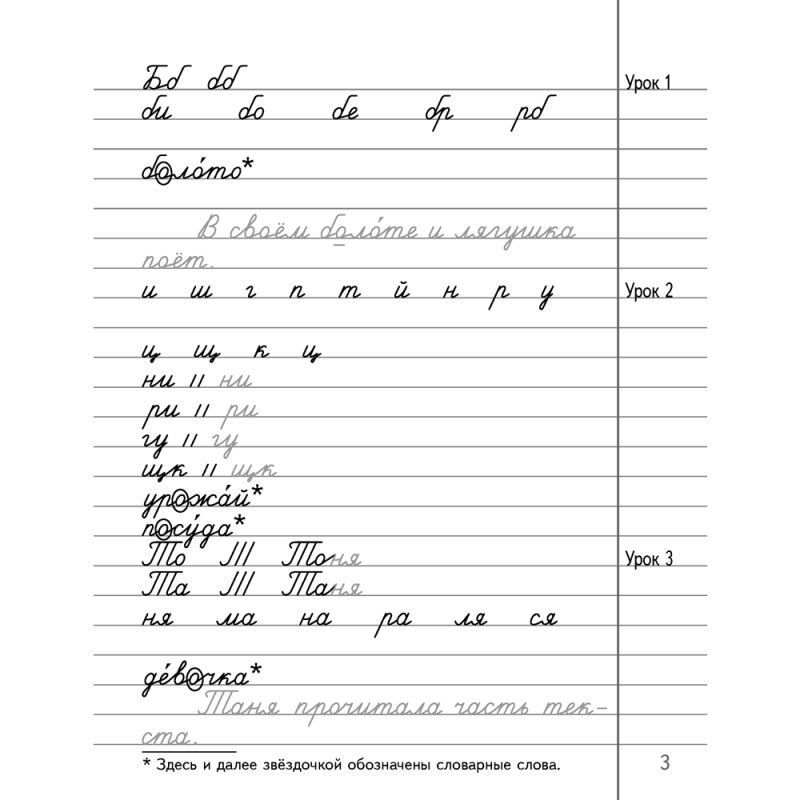 Бб бб Урок 1
би бо бе бр рб
боло́то*
В своём боло́те и лягушка
поёт.
и ш г п т й н р у Урок 2
ц щ к ц
ни // ни
ри // ри
гу // гу
щк // щк
урожа́й*
посу́да*
То /// Тоня Урок 3
Та /// Таня
ня ма на ра ля ся
де́вочка*
Таня прочитала часть тек-
ста.
* Здесь и далее звёздочкой обозначены словарные слова. 3